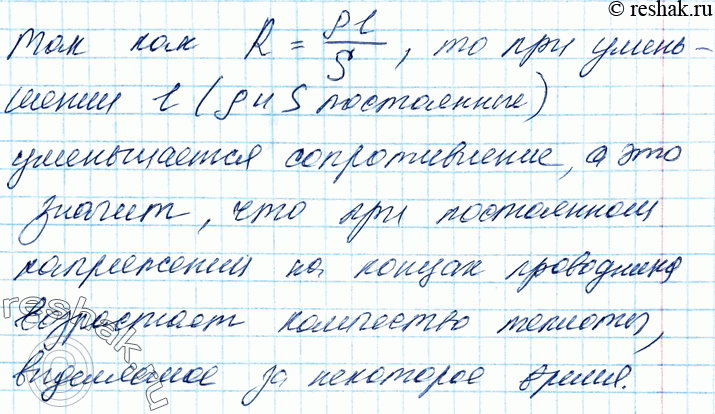 © reshak.ru
Так как R = ρl/S, то при умень-
шении l (ρ и S постоянные)
уменьшается сопротивление, а это
значит, что при постоянном
напряжении на концах проводника
возрастает количество теплоты,
выделяемое за некоторое время.
reshak.ru